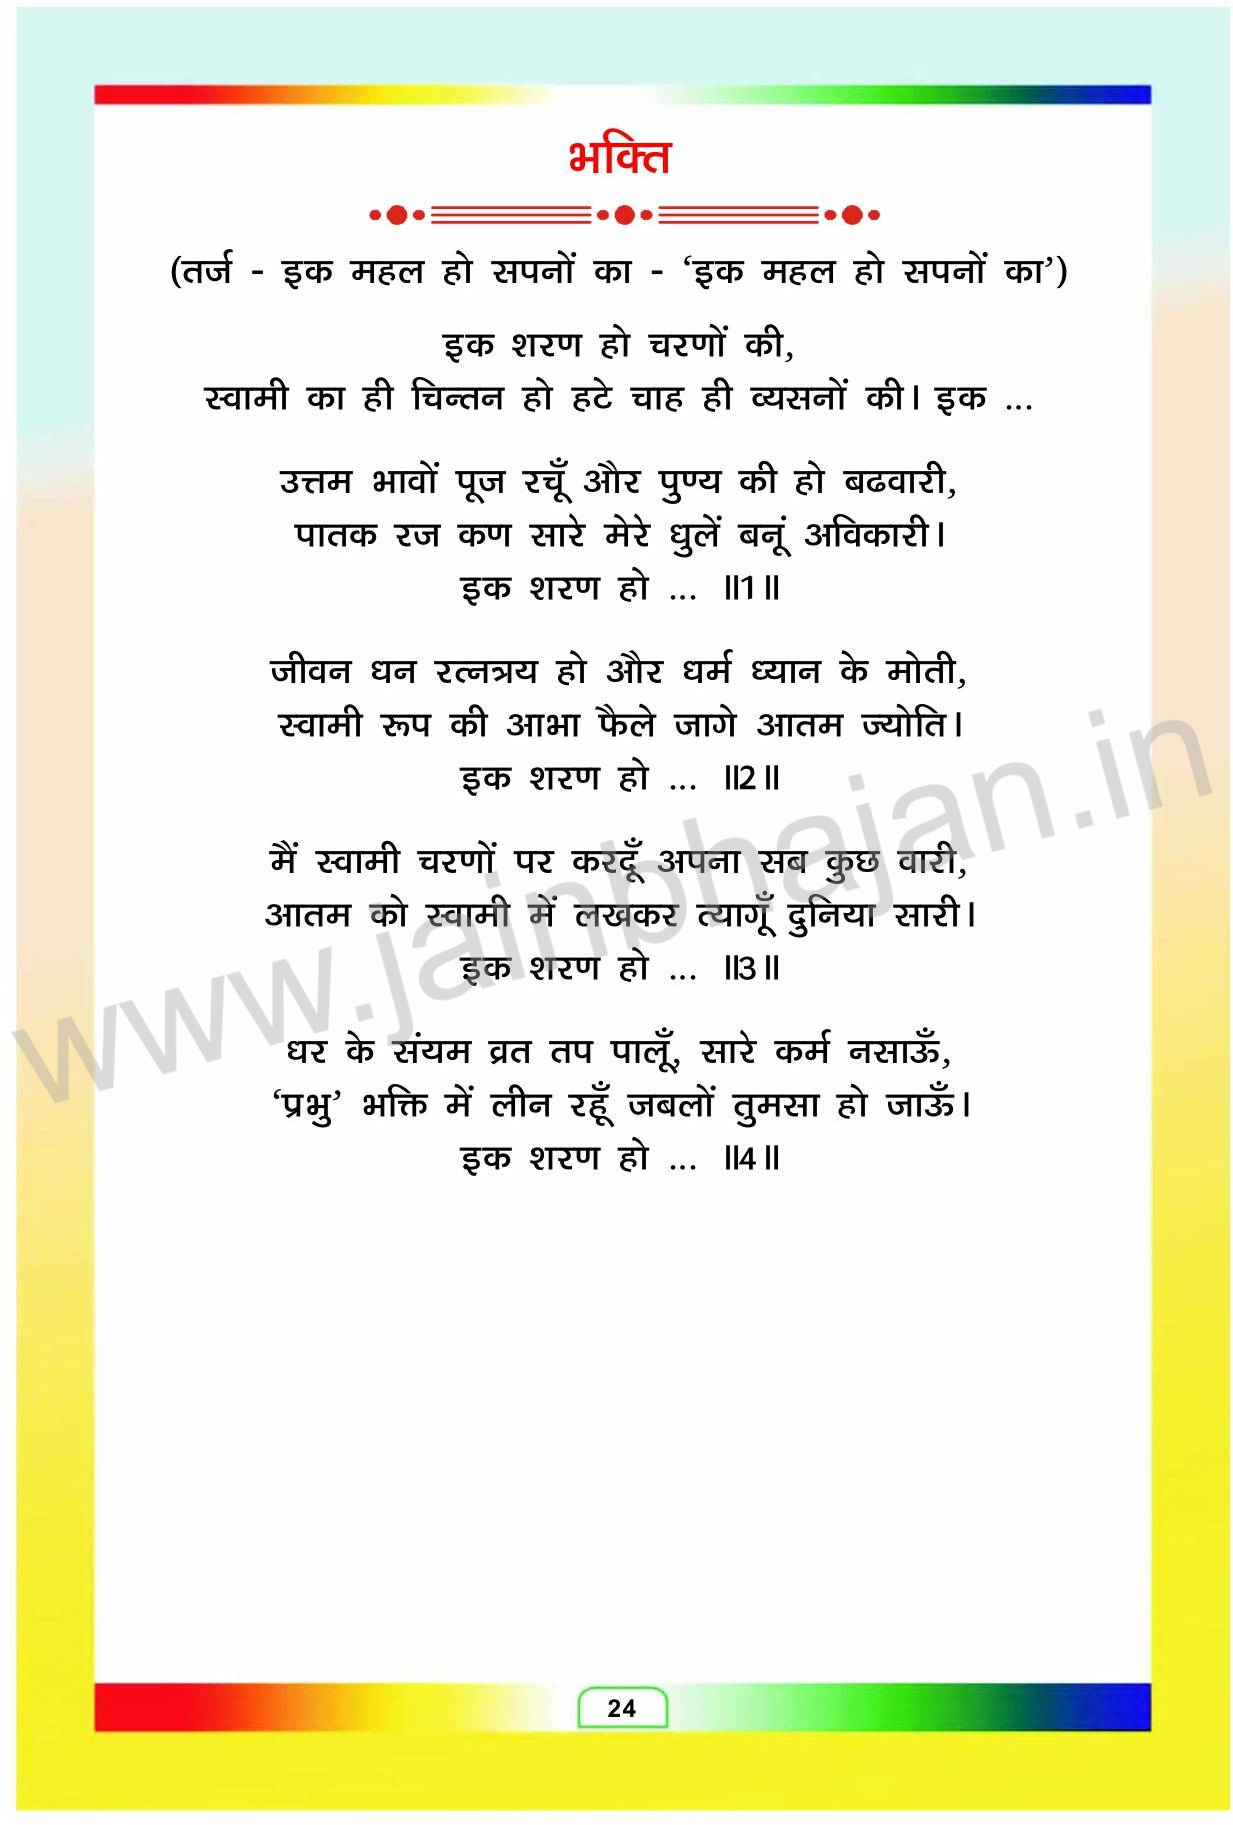 भक्ति
(तर्ज - इक महल हो सपनों का - ‘इक महल हो सपनों का’)
इक शरण हो चरणों की,
स्वामी का ही चिन्तन हो हटे चाह ही व्यसनों की। इक ...
उत्तम भावों पूज रचूँ और पुण्य की हो बढवारी,
पातक रज कण सारे मेरे धुलें बनूं अविकारी।
इक शरण हो ... ॥1॥
जीवन धन रत्नत्रय हो और धर्म ध्यान के मोती,
स्वामी रूप की आभा फैले जागे आतम ज्योति।
इक शरण हो ... ॥2॥
मैं स्वामी चरणों पर करदूँ अपना सब कुछ वारी,
आतम को स्वामी में लखकर त्यागूँ दुनिया सारी।
इक शरण हो ... ॥3॥
धर के संयम व्रत तप पालूँ, सारे कर्म नसाऊँ,
‘प्रभु’ भक्ति में लीन रहूँ जबलों तुमसा हो जाऊँ।
इक शरण हो ... ॥4॥
www.jainbhajan.in
24